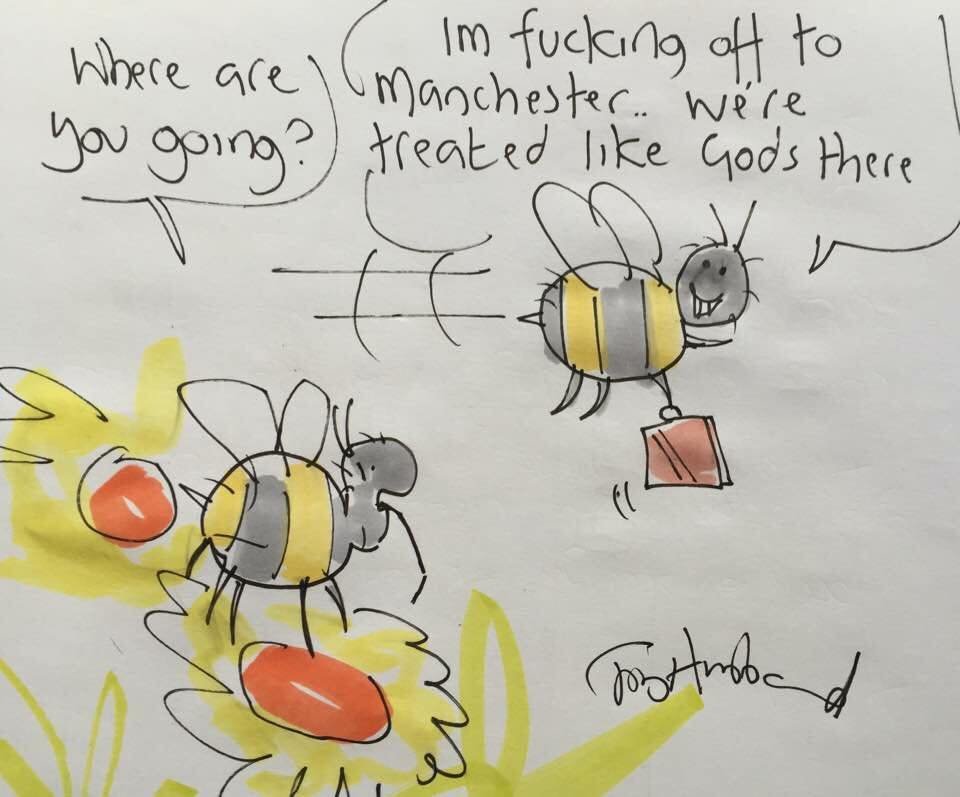 Where are
you going?
Im fucking off to
manchester.. we're
treated like Gods there
Tony Husband